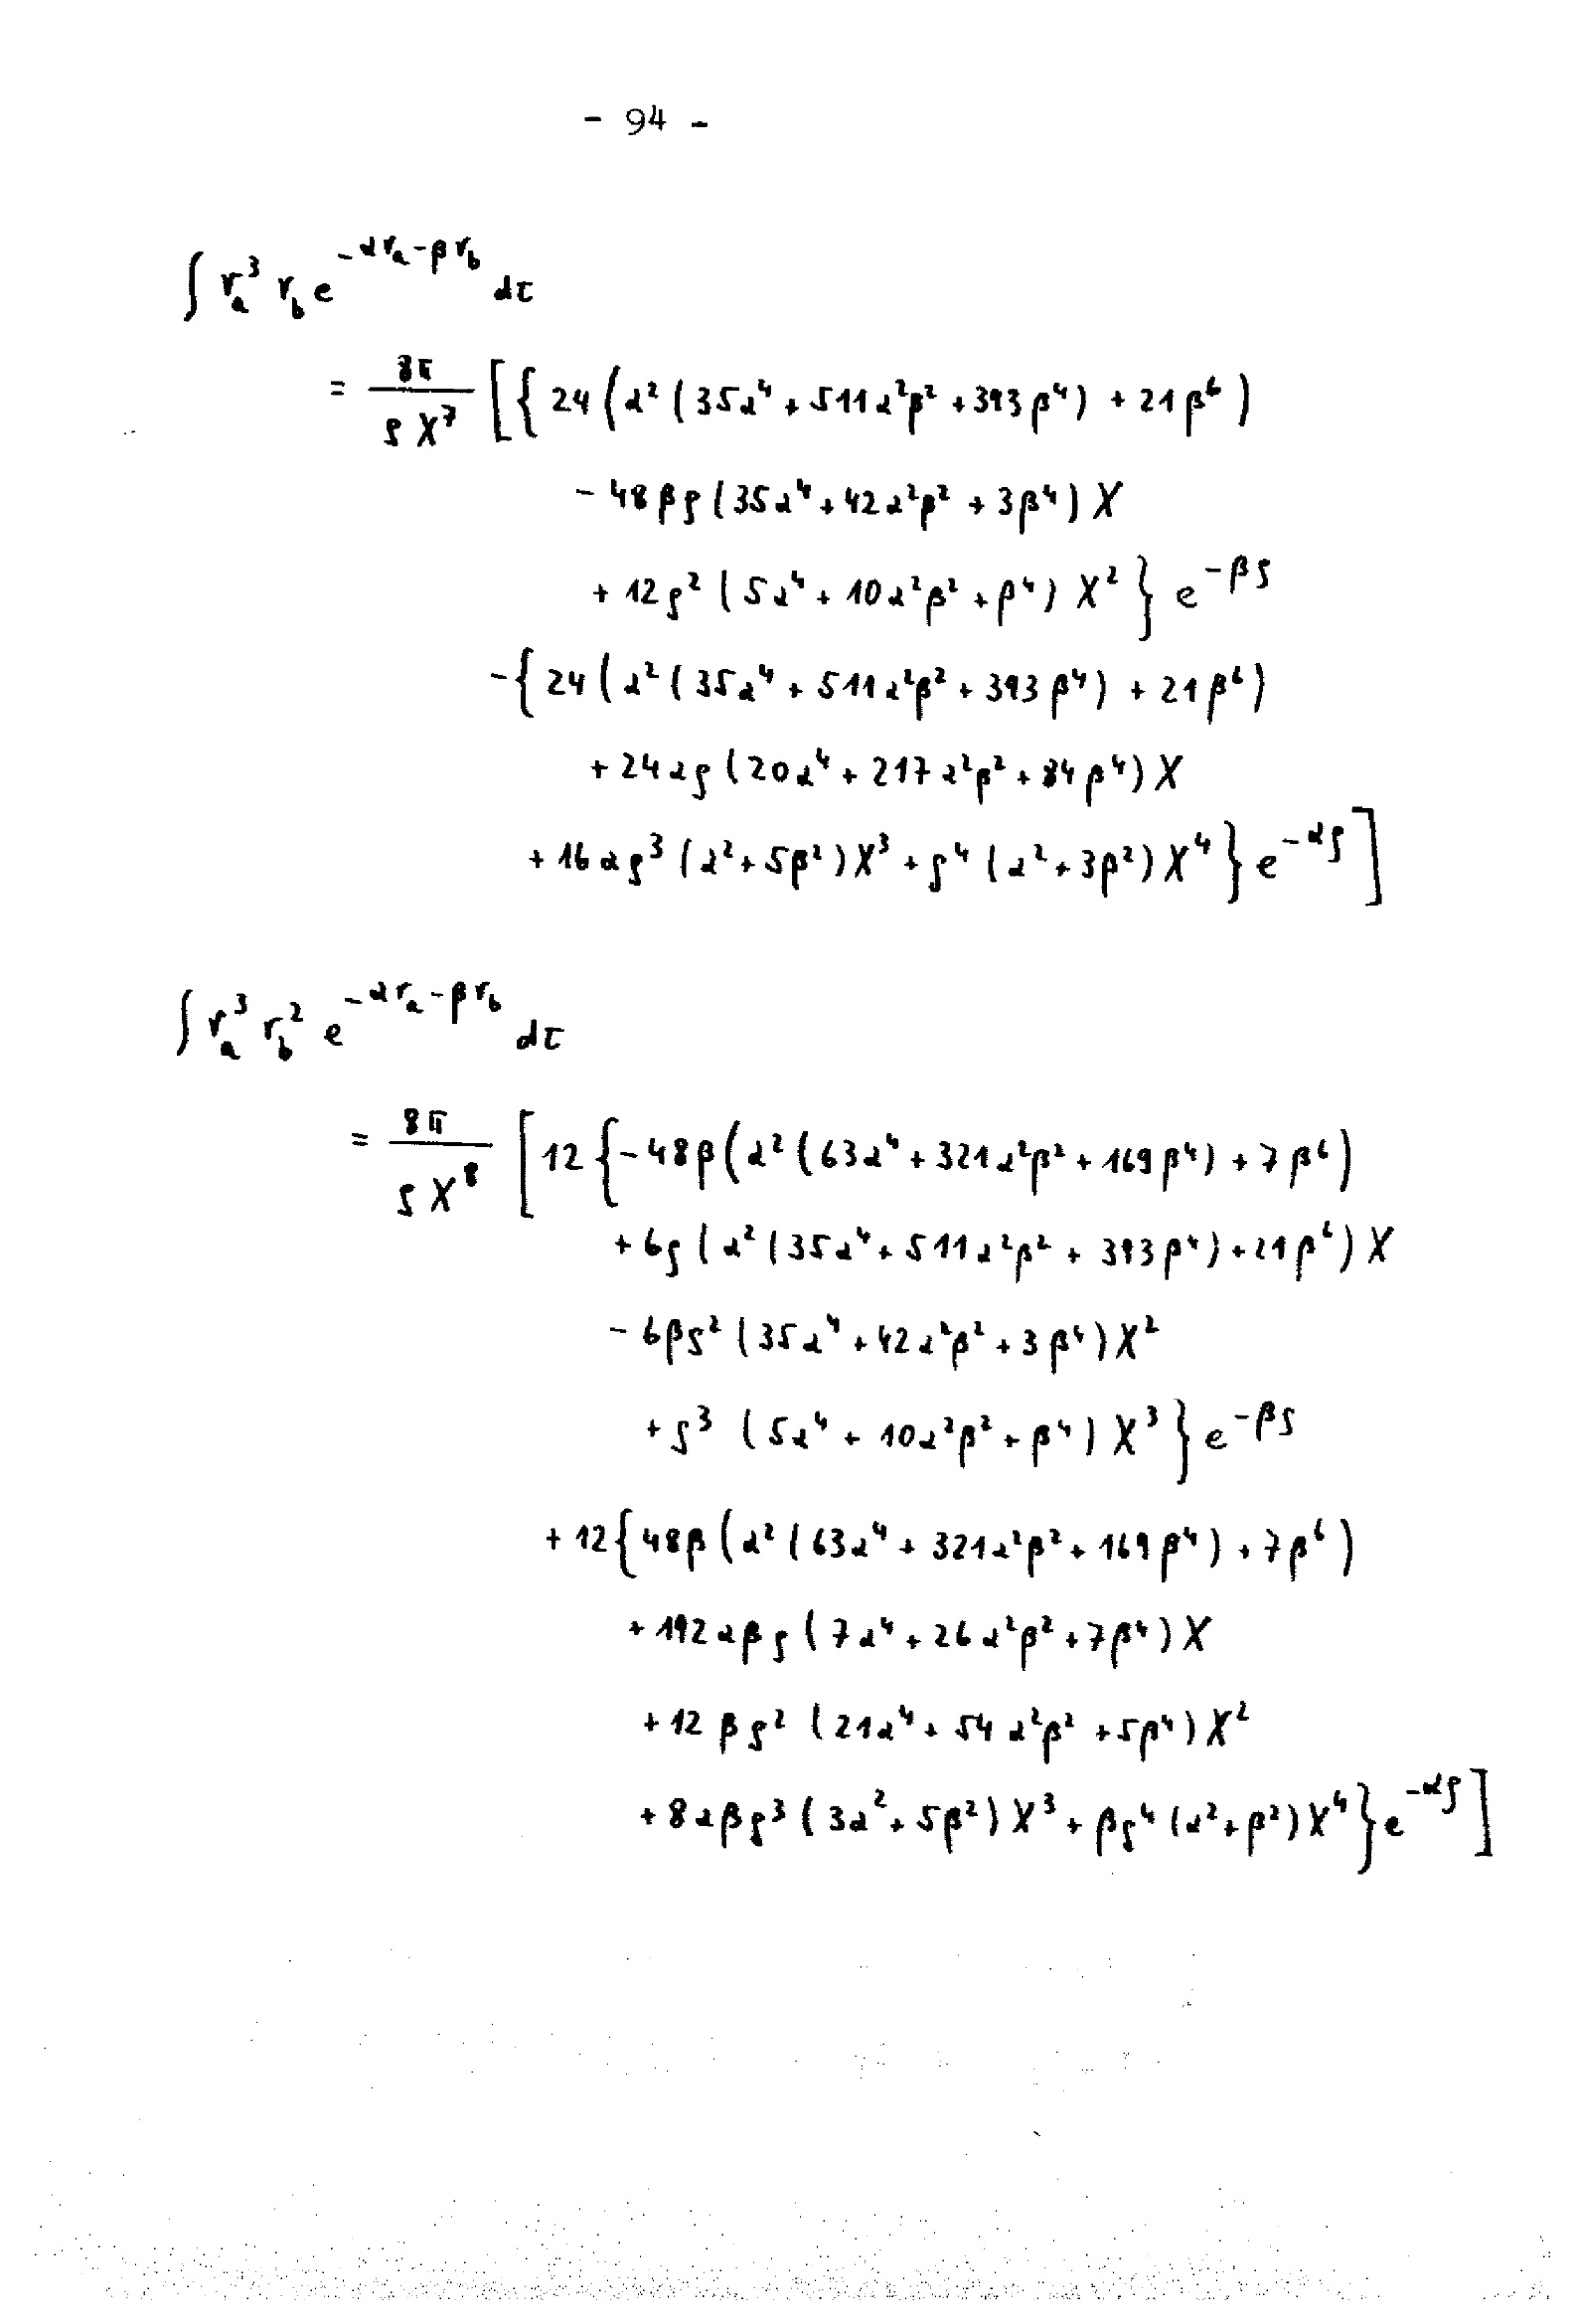 - 94 -
∫ r_a^3 r_b e^{-αr_a-βr_b} dτ
= \frac{8π}{ρX^7} [{24(α^2(35α^4+511α^2β^2+393β^4)+21β^6)
-48βρ(35α^4+42α^2β^2+3β^4)X
+12ρ^2(5α^4+10α^2β^2+β^4)X^2} e^{-βρ}
-{24(α^2(35α^4+511α^2β^2+393β^4)+21β^6)
+24αρ(20α^4+217α^2β^2+84β^4)X
+16αρ^3(α^2+5β^2)X^3+ρ^4(α^2+3β^2)X^4} e^{-αρ}]
∫ r_a^3 r_b^2 e^{-αr_a-βr_b} dτ
= \frac{8π}{ρX^8} [12{-48β(α^2(63α^4+321α^2β^2+169β^4)+7β^6)
+6ρ(α^2(35α^4+511α^2β^2+393β^4)+21β^6)X
-6βρ^2(35α^4+42α^2β^2+3β^4)X^2
+ρ^3(5α^4+10α^2β^2+β^4)X^3} e^{-βρ}
+12{48β(α^2(63α^4+321α^2β^2+169β^4)+7β^6)
+192αβρ(7α^4+26α^2β^2+7β^4)X
+12βρ^2(21α^4+54α^2β^2+5β^4)X^2
+8αβρ^3(3α^2+5β^2)X^3+βρ^4(α^2+β^2)X^4} e^{-αρ}]